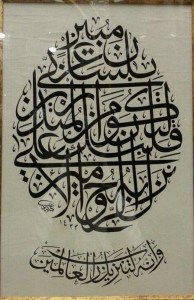 وإنه لتنزيل رب العالمين
نزل به الروح الأمين
على قلبك لتكون من المنذرين
بلسان عربي
مبين